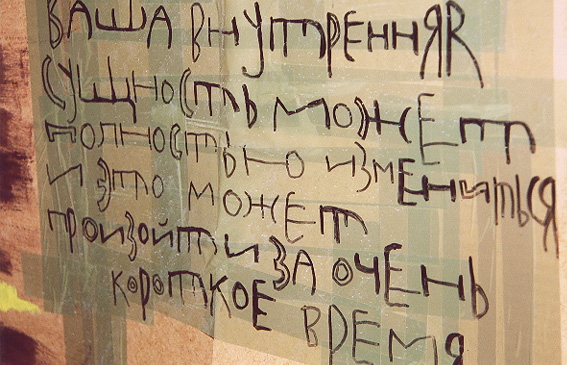 ВАША ВНУТРЕННЯЯ
СУЩНОСТЬ МОЖЕТ
ПОЛНОСТЬЮ ИЗМЕНИТЬСЯ
И ЭТО МОЖЕТ
ПРОИЗОЙТИ ЗА ОЧЕНЬ
КОРОТКОЕ ВРЕМЯ